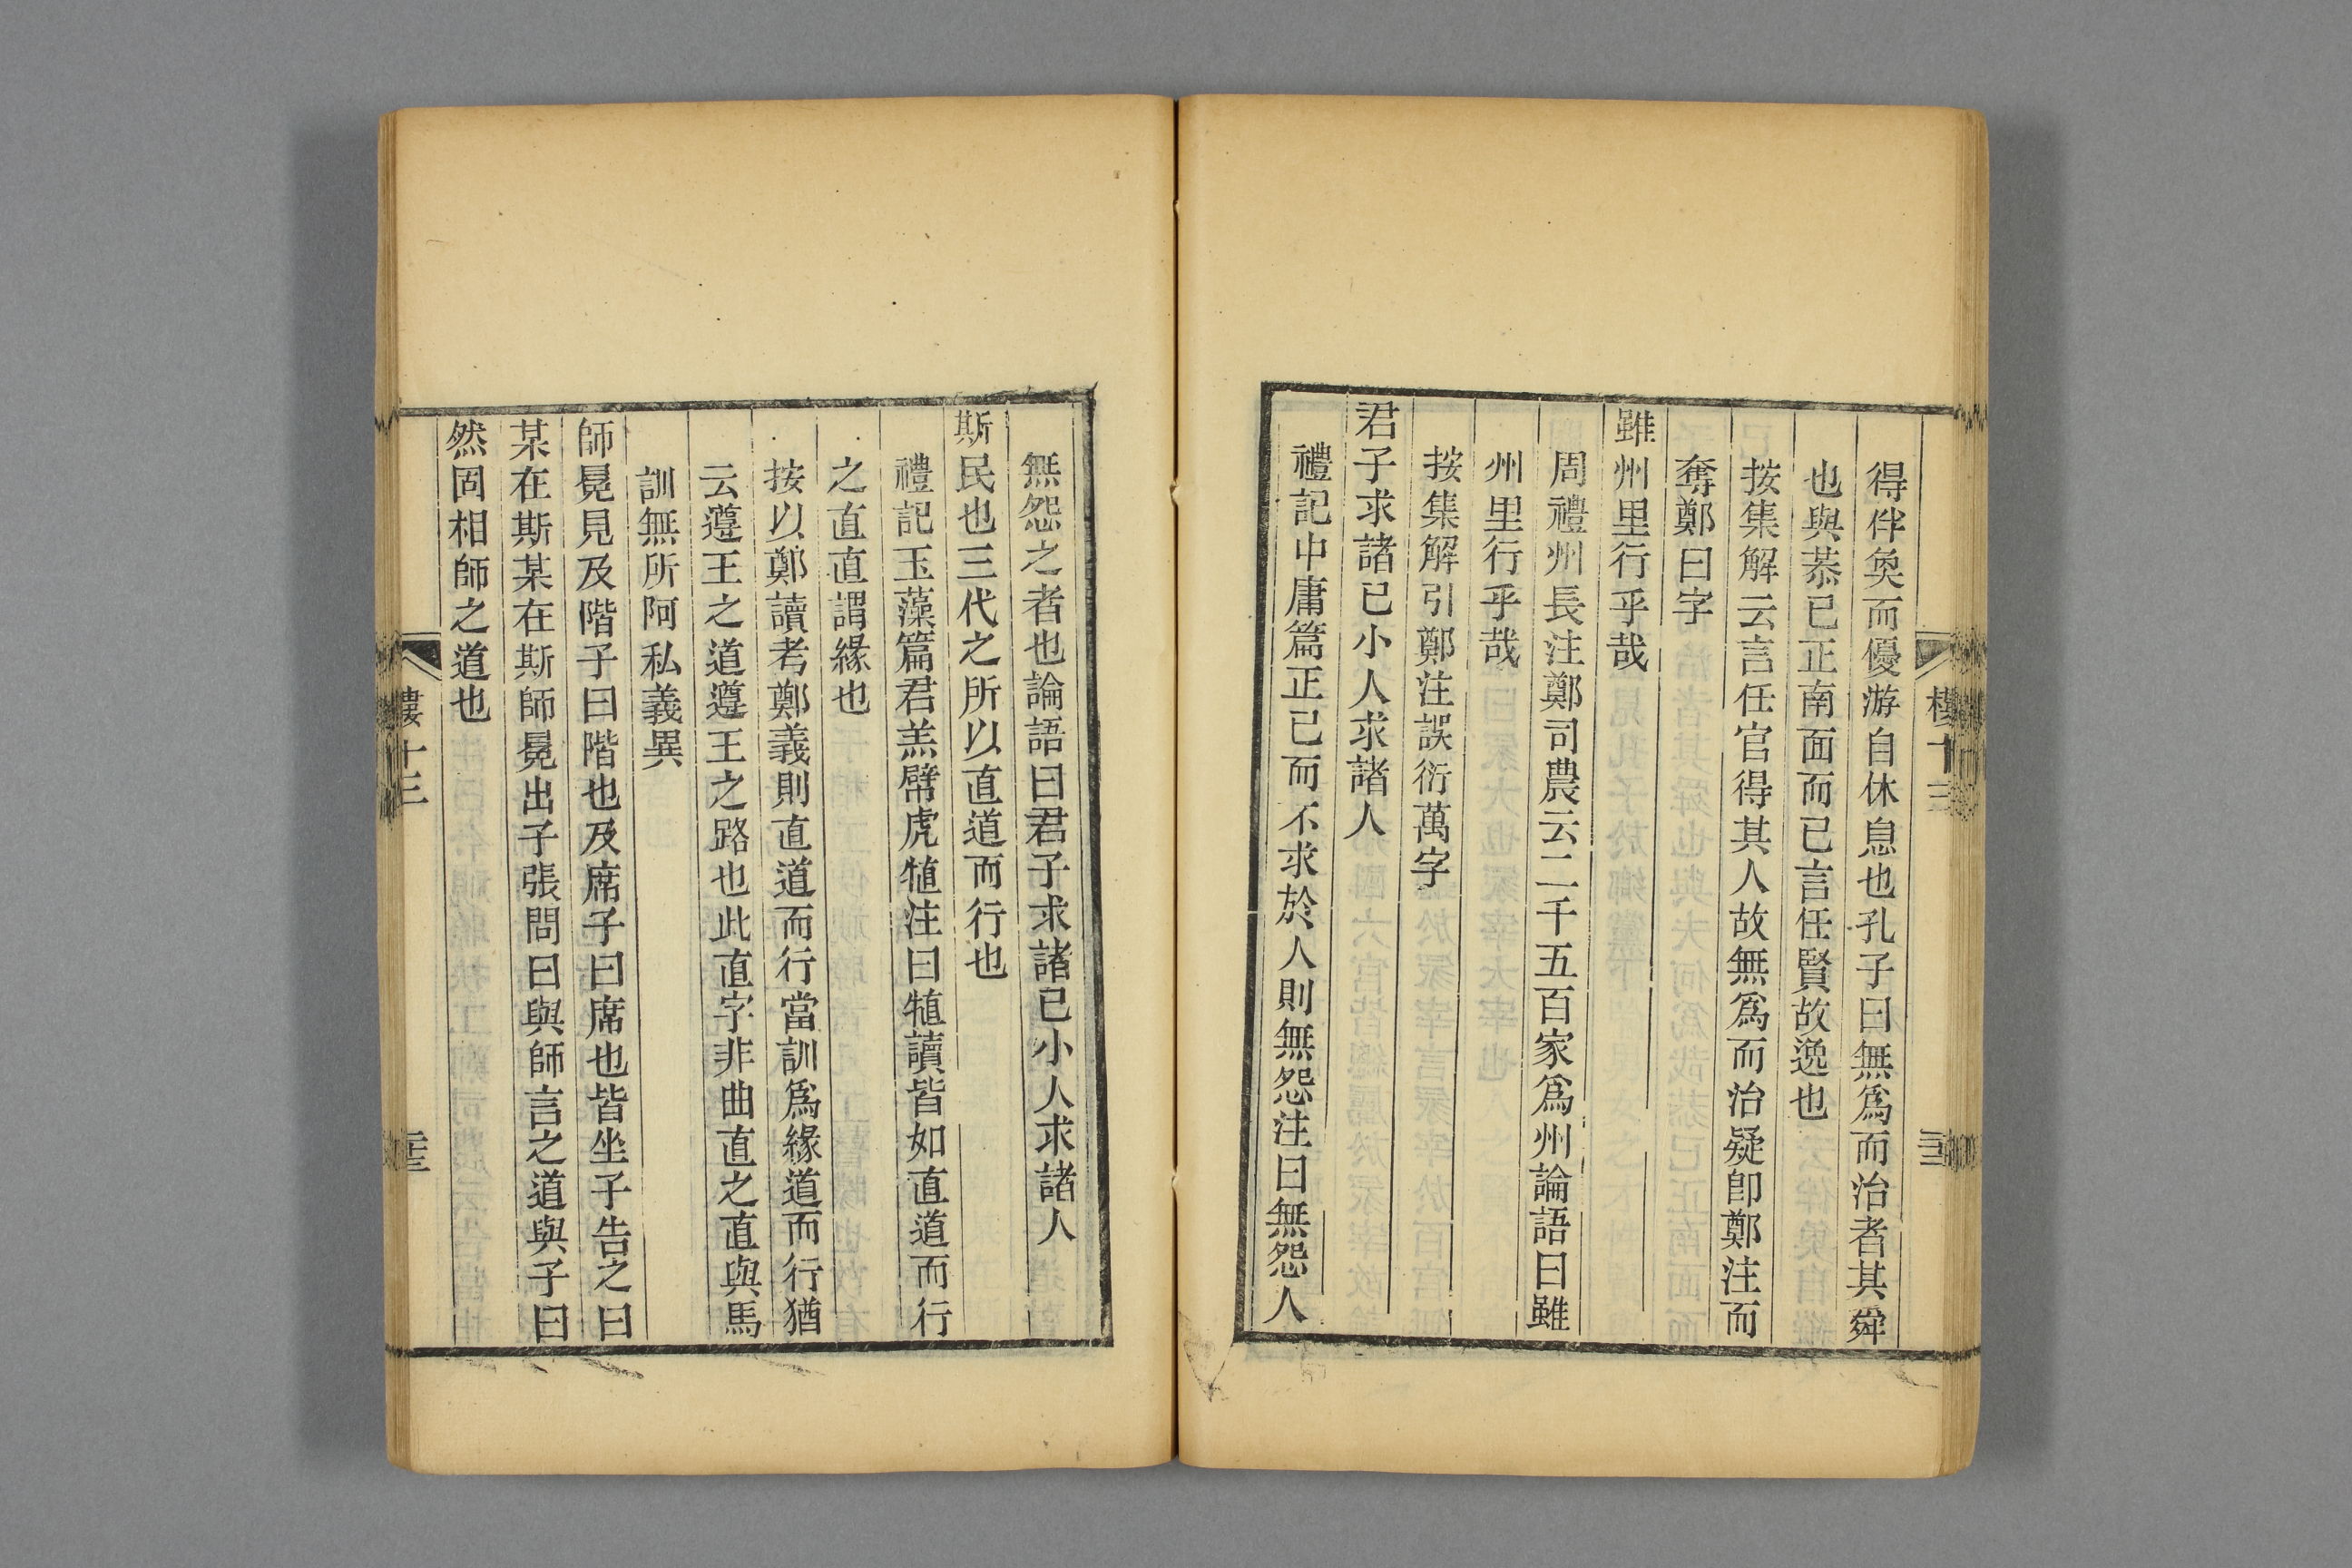 得伴奐而優游自休息也孔子曰無爲而治者其舜
也與恭已正南面而已言任賢故逸也
按集解云言任官得其人故無爲而治疑卽鄭注而
奪鄭曰字
雖州里行乎哉
周禮州長注鄭司農云二千五百家爲州論語曰雖
州里行乎哉
按集解引鄭注誤衍萬字
君子求諸已小人求諸人
禮記中庸篇正已而不求於人則無怨注曰無怨人
無怨之者也論語曰君子求諸已小人求諸人
斯民也三代之所以直道而行也
禮記玉藻篇君羔幦虎犆注曰犆讀皆如直道而行
之直直謂緣也
按以鄭讀考鄭義則直道而行當訓爲緣道而行猶
云遵王之道遵王之路也此直字非曲直之直與馬
訓無所阿私義異
師冕見及階子曰階也及席子曰席也皆坐子告之曰
某在斯某在斯師冕出子張問曰與師言之道與子曰
然固相師之道也
樓十三